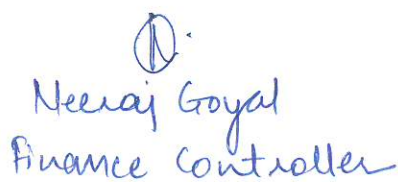 N.
Neeraj Goyal
Finance Controller